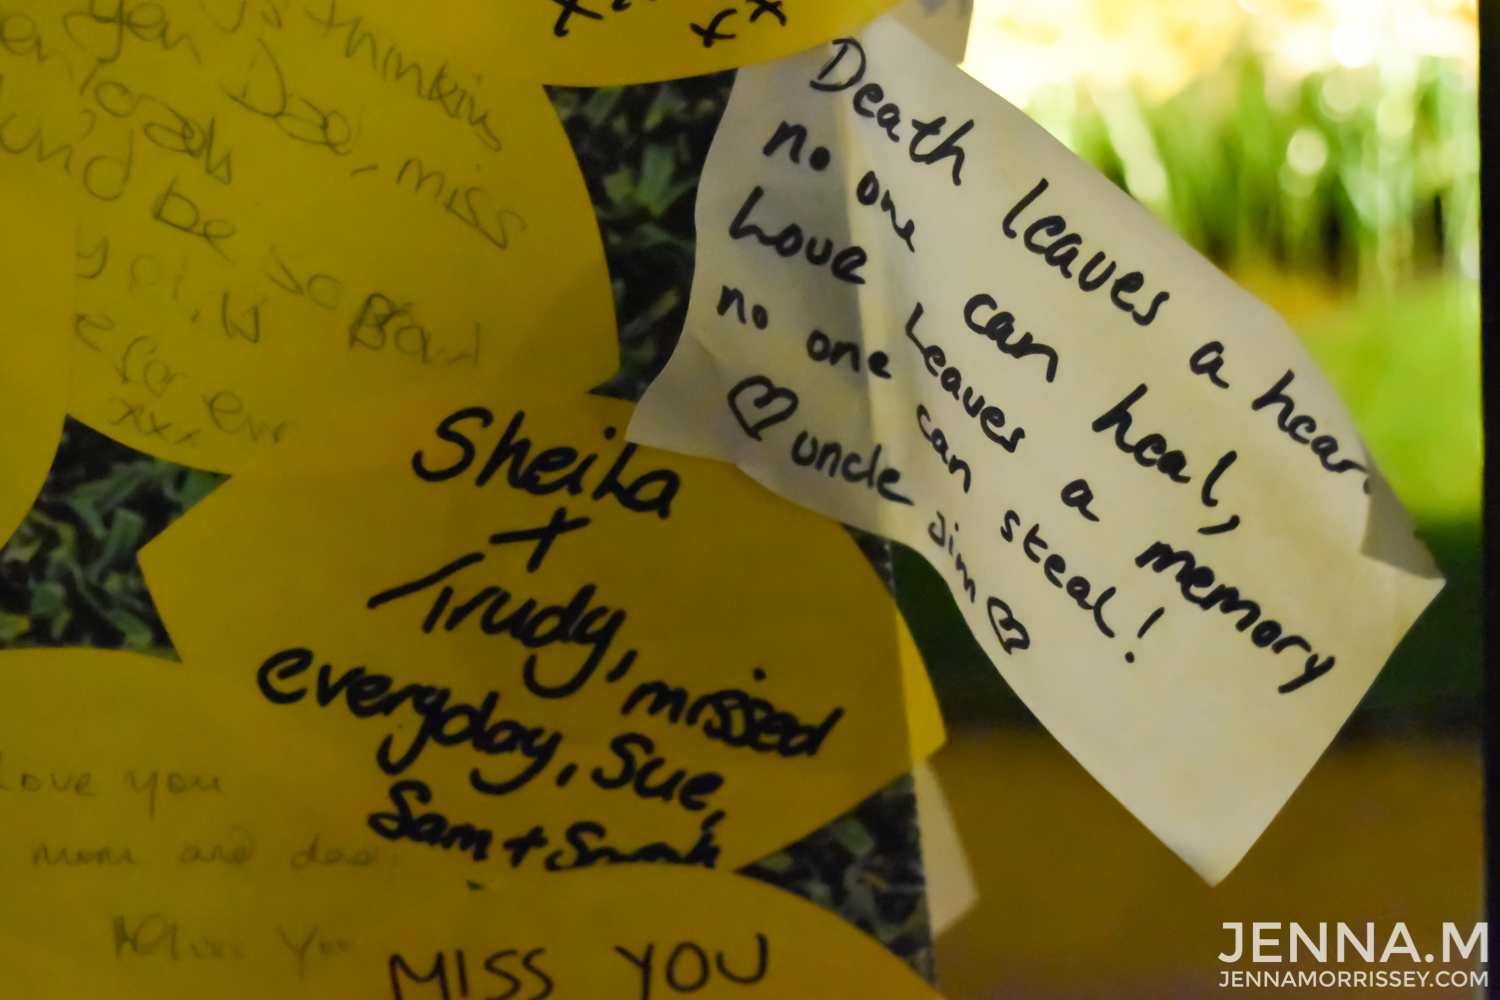 is thinking
Dad, miss
loads
und be so
for ever
xxx
Death leaves a hear
no one can heal,
Love Leaves a memory
no one can steal!
♡ uncle Jim ♡
Sheila
+
Trudy, missed
everyday, Sue,
Sam +
Love you
mom and dad.
Miss You
MISS YOU
JENNA.M
JENNAMORRISSEY.COM